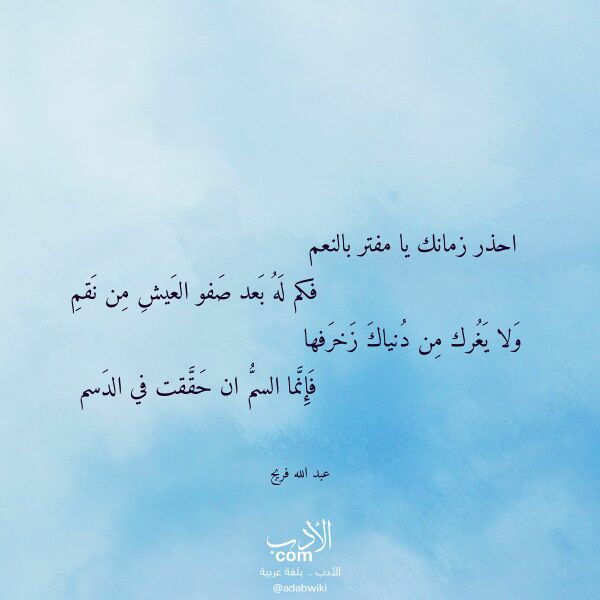 احذر زمانك يا مفتر بالنعم
فكم لَهُ بَعد صَفو العَيشِ مِن نَقمِ
وَلا يَغُرك مِن دُنياكَ زَخرَفها
فَإِنَّما السمُّ ان حَقَّقت في الدَسم
عبد الله فريج
الأدب
com
الأدب .. بلغة عربية
@adabwiki